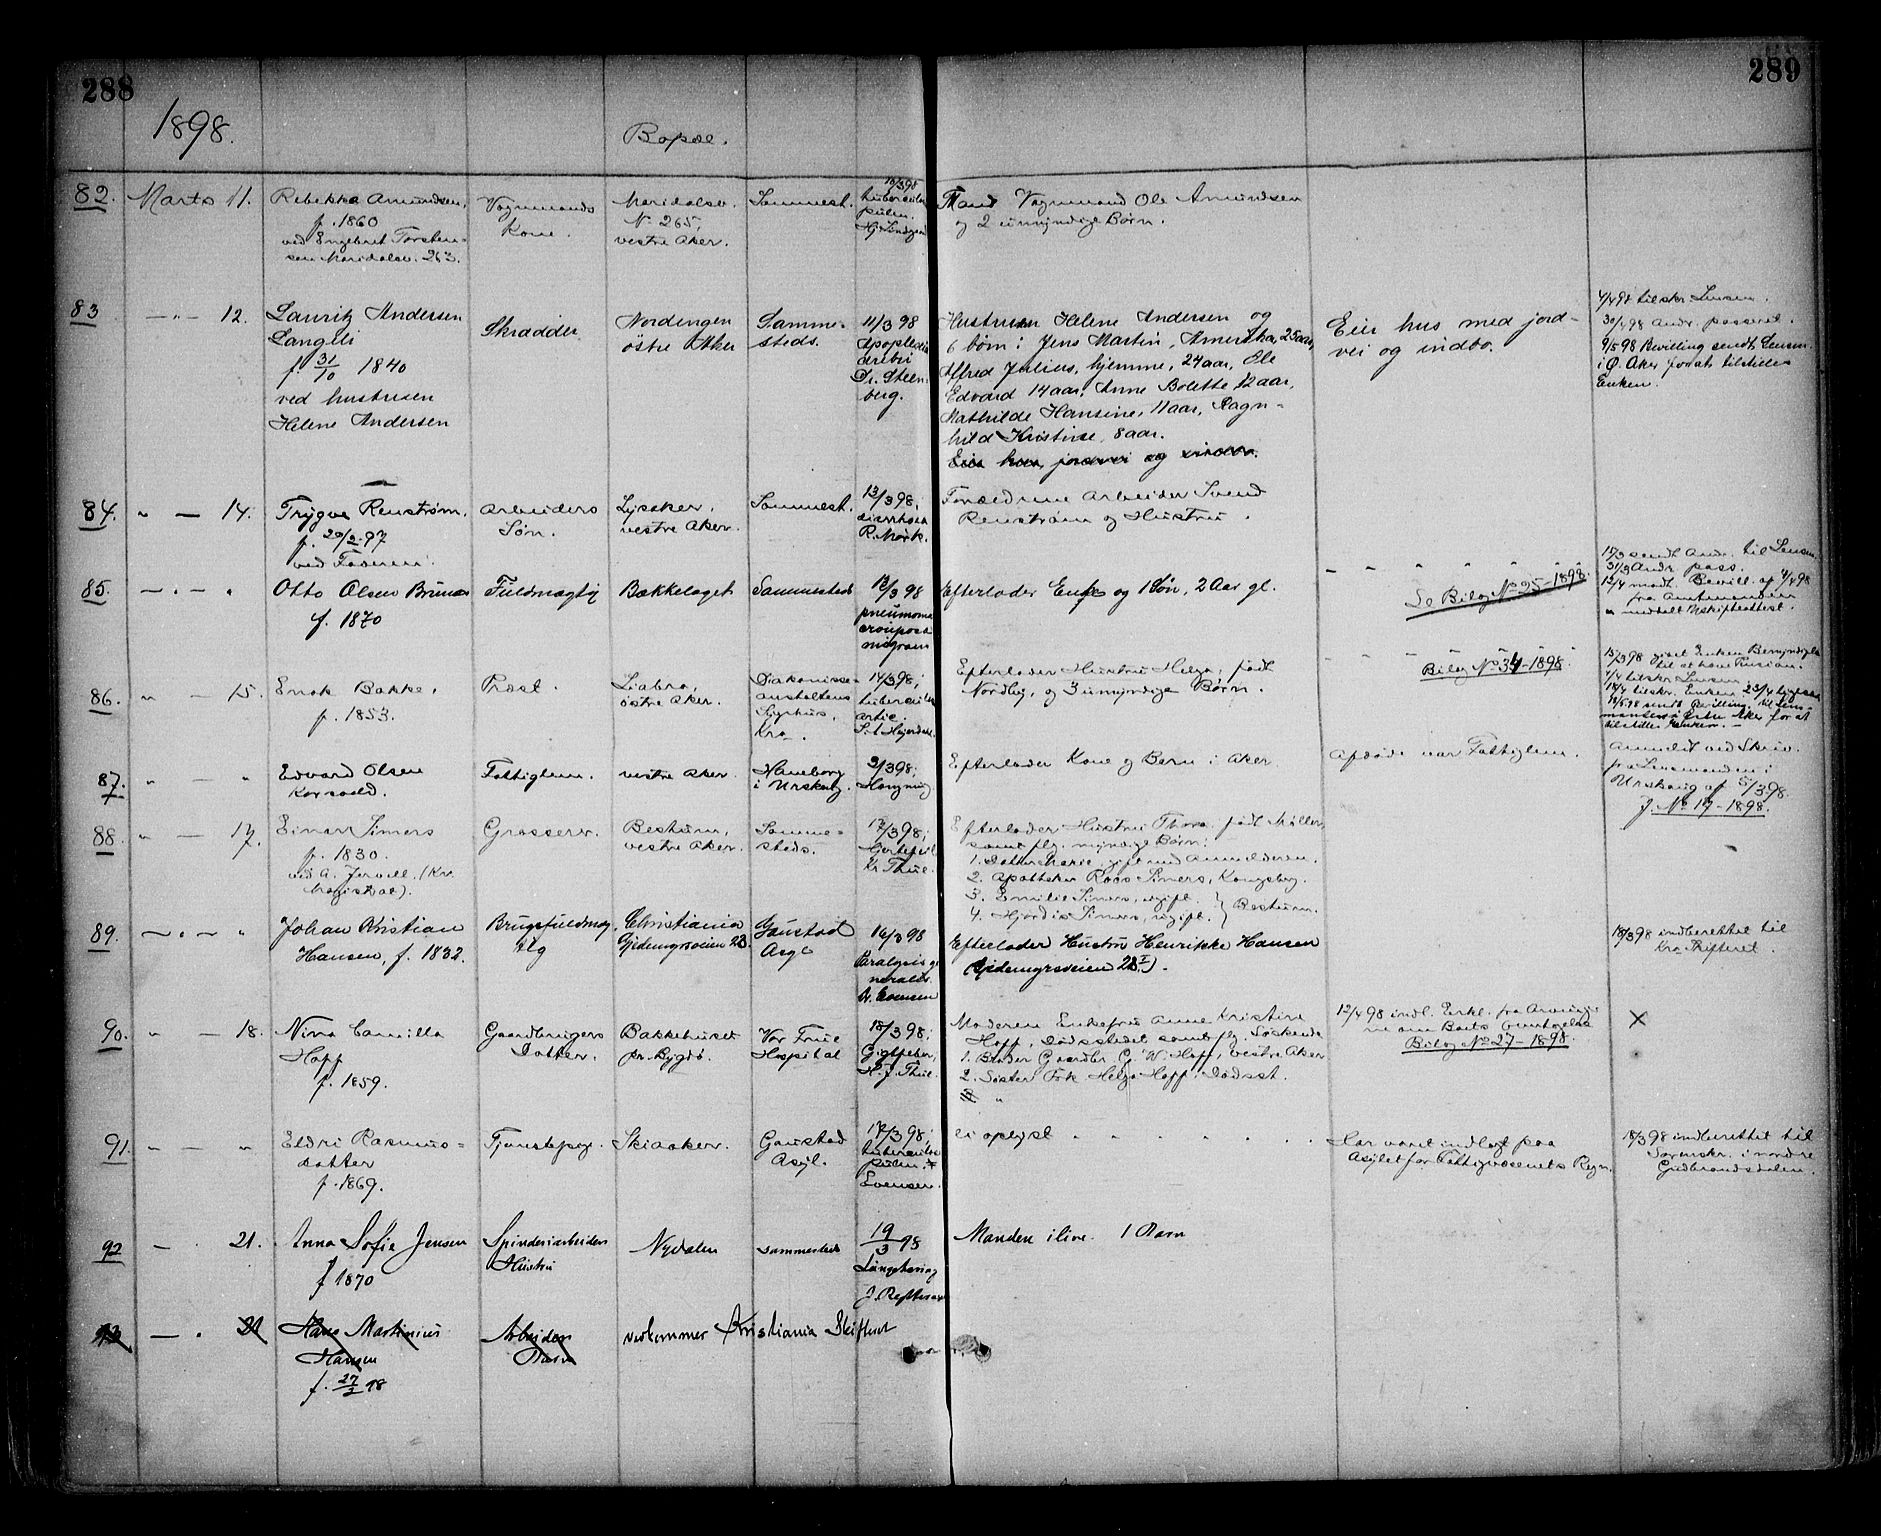 288
289
1898.
Bopæl.
82. Marts 11.
Rebekka Amundsen,
f. 1860
ved Engebret Torsten-
sen Maridalsv. 263.
Vognmands
Kone.
Maridalsv.
No 265,
vestre Aker.
Sammest.
10/3 98
tubercul.
pulm.
Mand Vognmand Ole Amundsen
og 2 umyndige Børn.
83 12.
Lauritz Andersen
f. 31/10 1840
ved hustruen
Helene Andersen
Skrædder
østre Aker
Samme-
steds.
11/3 98
Apoplexia
cerebri
Dr. Steen-
berg.
Hustruen Helene Andersen og
6 børn: Jens Martin, Amerika, 25 aar,
Alfred Julius, hjemme, 24 aar, Ole
Edvard 14 aar, Anne Bolette 12 aar,
Mathilde Hansine, 11 aar, Ragn-
hild Kristine, 8 aar.
Eier hus med jord-
vei og indbo.
4/4 98 tilskr. Lensm.
30/4 98 Andr. passeret.
9/5 98 Bevilling sendt Lensm.
i Ø. Aker for at tilstilles
Enken.
84. " — 14.
Trygve Renstrøm,
f. 20/2 97
ved Faderen.
Arbeiders
Søn.
Lysaker,
vestre Aker.
Sammest.
13/3 98;
R. Mørk.
Forældrene Arbeider Svend
Renstrøm og Hustru.
85. — " — "
Otto Olsen Brunæs
f. 1870
Fuldmægtig
Bækkelaget
Sammesteds
13/3 98
pneumonia
crouposa
Efterlader Enke og 1 Søn, 2 Aar gl.
Se Bilag No 25-1898.
17/3 sendt Andr. til Lensm.
31/3 Andr. pass.
12/4 modt. Bevill. af 4/4 98
fra Amtmanden
" meddelt Uskifteattest.
86. " — 15.
Enok Bakke,
f. 1853.
Præst.
Liabro,
østre Aker.
Diakonisse-
anstaltens
Sygehus,
Kra.
14/3 98;
Efterlader Hustru Helga, født
Nordby, og 3 umyndige Børn.
Bilag No 34-1898.
87. " — "
Edvard Olsen
Korsvold.
Fattiglem.
vestre Aker.
Haneborg
i Urskoug.
2/3 98;
Efterlader Kone og Børn i Aker.
Afdøde var Fattiglem.
Anmeldt ved Skriv.
fra Lensmanden i
Urskoug af 5/3 98.
J. No 17-1898.
88. " — 17.
Einar Simers
f. 1830.
ved A. Jervell. (Kra
Magistrat).
Grosserer.
Bestum,
vestre Aker.
Samme-
steds.
17/3 98;
Hjertefeil
Kr. Thue.
Efterlader Hustru Thora, født Møller,
samt flg. myndige Børn:
1. Datter Marie, gift med Anmelderen.
2. Apotheker Roos Simers, Kongsberg.
3. Emilie Simers, ugift.
4. Hjørdis Simers, ugift. } Bestum.
89. — " — "
Johan Kristian
Hansen, f. 1832.
Brugsfuldmæg
tig
Christiania
Gjedemyrsveien 23.
Gaustad
Asyl
16/3 98
Paralysis ge
neralis.
Dr. Evensen
Efterlader Hustru Henrikke Hansen
(Gjedemyrsveien 23 I).
18/3 98 indberettet til
Kra Skifteret.
90. " — 18.
Nina Camilla
Hoff
f. 1859.
Gaardbrugers
Datter.
Bakkehuset
pr. Bygdø.
Vor Frue
Hospital
18/3 98;
Gigtfeber,
H. J. Thue.
Moderen Enkefru Anne Kristine
Hoff, Dødsstedet samt flg. Søskende
1. Broder Gaardbr. G. W. Hoff, vestre Aker
2. Søster Frk. Helga Hoff, Dødsst.
12/4 98 indl. Erkl. fra Arving
Bilag No 27-1898.
X
91. " — "
Eldri Rasmus-
datter
f. 1869.
Tjenestepige.
Skiaker.
Gaustad
Asyl.
17/3 98;
Evensen.
ei oplyst
Har været indlagt paa
Asylet for Fattigvæsenets Regn.
18/3 98 indberettet til
Sorenskr. i nordre
Gudbrandsdalen.
92 — 21.
Anna Sofie Jensen
f 1870
Spinderiarbeiders
Hustru
Nydalen
sammesteds
19/3 98
Lungetæring
Manden ilive. 1 Barn
93 — " 21
Hans Martinius
Hansen
f. 27/2 98
Arbeider
Barn
vedkommer Kristiania Skifteret